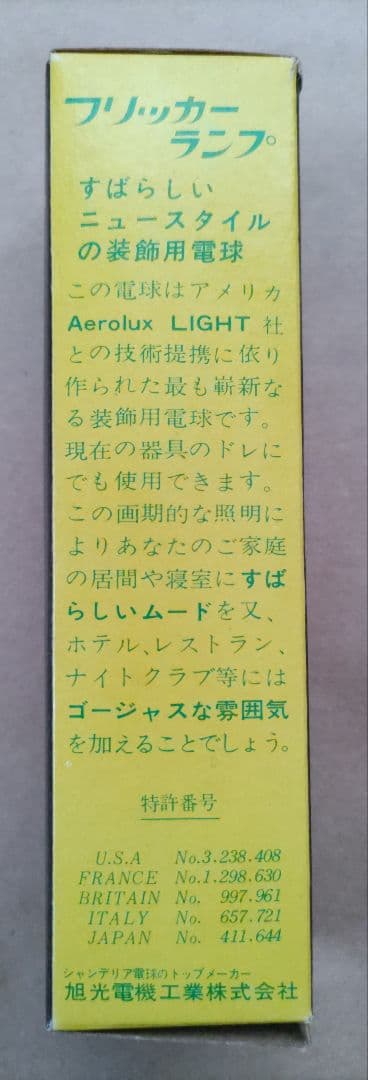 フリッカー
ランプ
すばらしい
ニュースタイル
の装飾用電球
この電球はアメリカ
Aerolux LIGHT 社
との技術提携に依り
作られた最も嶄新な
る装飾用電球です。
現在の器具のドレに
でも使用できます。
この画期的な照明に
よりあなたのご家庭
の居間や寝室にすば
らしいムードを又、
ホテル、レストラン、
ナイトクラブ等には
ゴージャスな雰囲気
を加えることでしょう。
特許番号
U.S.A No.3.238.408
FRANCE No.1.298.630
BRITAIN No. 997.961
ITALY No. 657.721
JAPAN No. 411.644
シャンデリア電球のトップメーカー
旭光電機工業株式会社